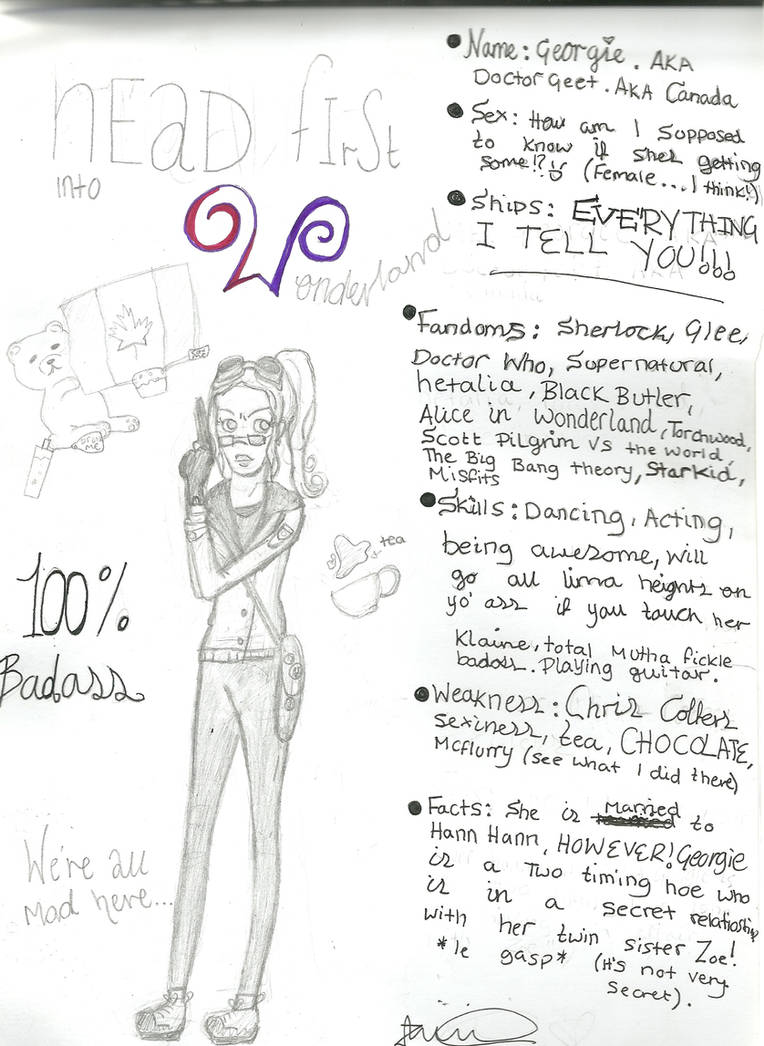 HEAD first
into
Wonderland
100%
Badass
We're all
mad here...
tea
• Name: Georgie. AKA
Doctor Geet. AKA Canada
• Sex: How am I supposed
to know if shes getting
some!? (Female....I think!)
• Ships: EVERYTHING
I TELL YOU!!!
• Fandoms: Sherlock, Glee,
Doctor Who, Supernatural,
hetalia, Black Butler,
Alice in Wonderland, Torchwood,
Scott Pilgrim Vs the world,
The Big Bang theory, Starkid,
Misfits
• Skills: Dancing, Acting,
being awesome, will
go all lima heights on
yo' ass if you touch her
Klaine, total Mutha fickle
badass. Playing guitar.
• Weakness: Chris Colfers
sexiness, tea, CHOCOLATE,
Mcflurry (see what I did there)
• Facts: She is Married to
Hann Hann, HOWEVER! Georgie
is a Two timing hoe who
is in a secret relationship
with her twin sister Zoe!
*le gasp* (It's not very
secret).